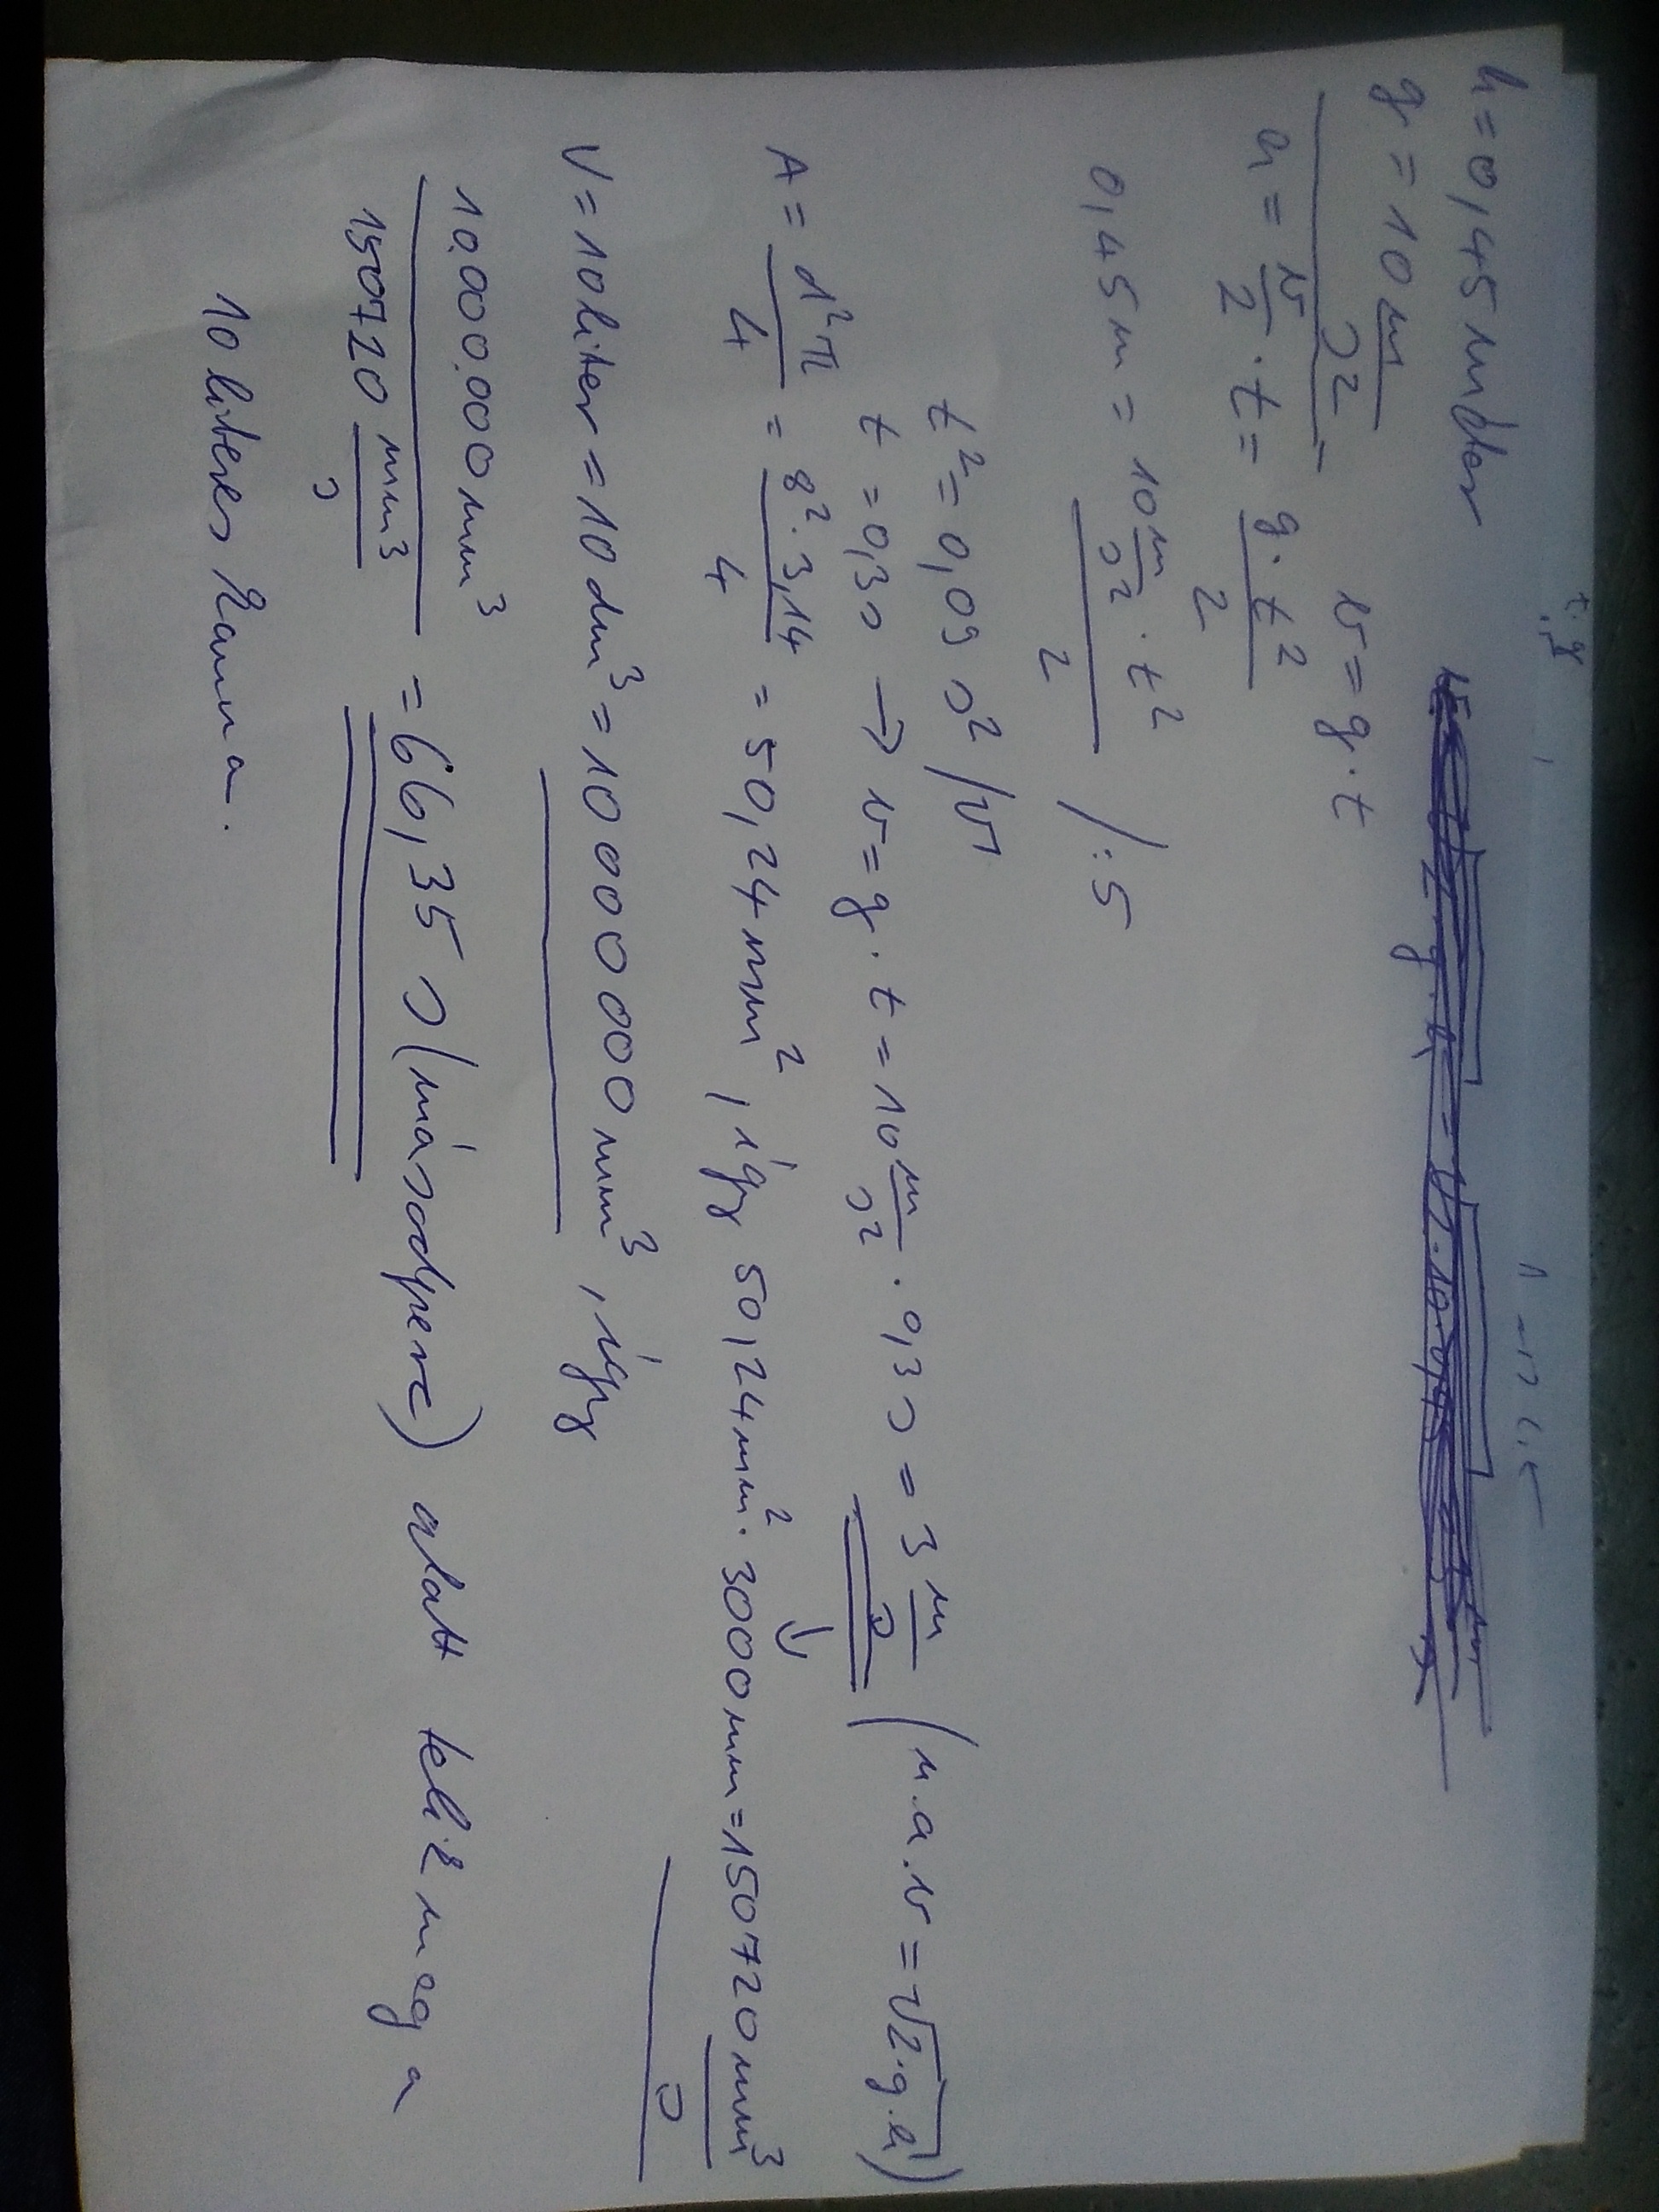 h = 0,45 m
g = 10 m/s²
v = g·t
h = v/2 · t = g·t²/2
0,45 m = 10 m/s² · t² / 2 /:5
t² = 0,09 s² /√
t = 0,3 s → v = g·t = 10 m/s² · 0,3 s = 3 m/s (m.a. v = √2·g·h)
A = d²π/4 = 8²·3,14/4 = 50,24 mm², így 50,24 mm² · 3000 mm = 150720 mm³/s
V = 10 liter = 10 dm³ = 10 000 000 mm³, így
10.000.000 mm³ / 150720 mm³/s = 66,35 s (másodperc) alatt telik meg a
10 literes kanna.